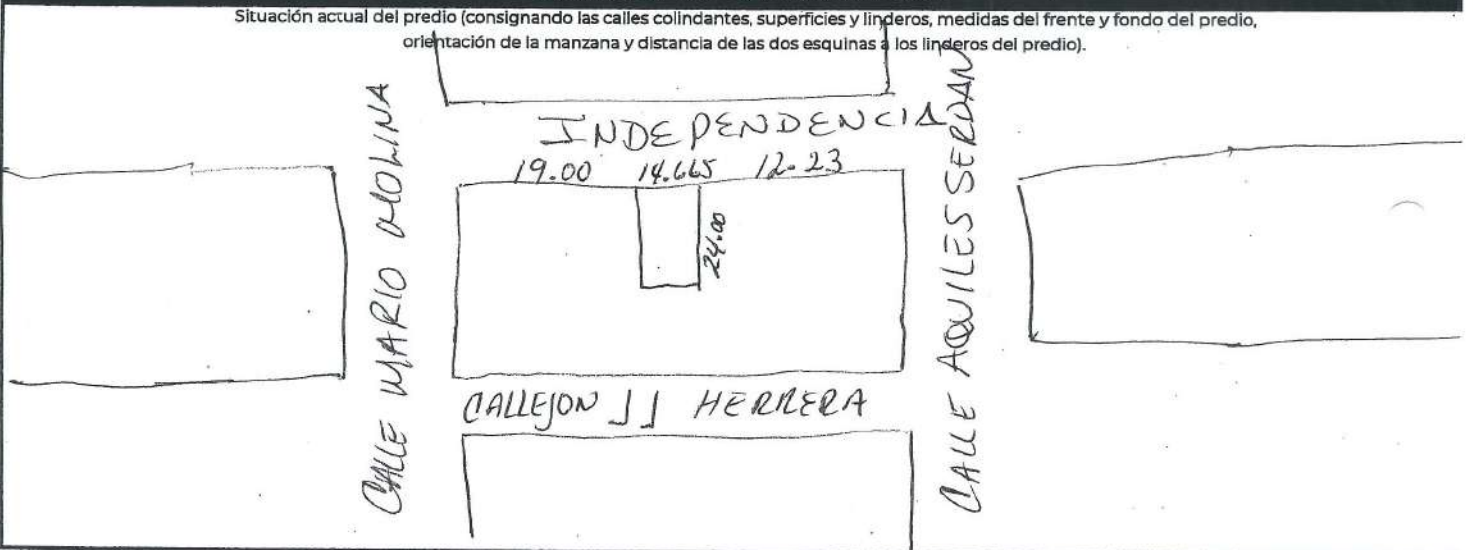 Situación actual del predio (consignando las calles colindantes, superficies y linderos, medidas del frente y fondo del predio,
orientación de la manzana y distancia de las dos esquinas a los linderos del predio).
INDEPENDENCIA
19.00 14.665 12.23
24.00
CALLE MARIO MOLINA
CALLE AQUILES SERDAN
CALLEJON JJ HERRERA